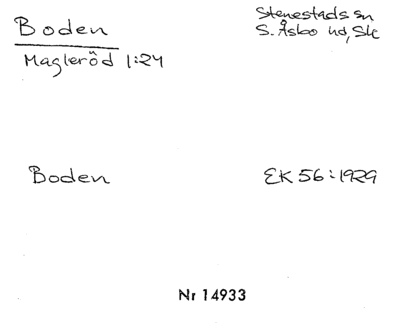 Boden
Stenestads sn
S. Åsbo hd, Sk
Magleröd 1:24
Boden
EK 56:1929
Nr 14933